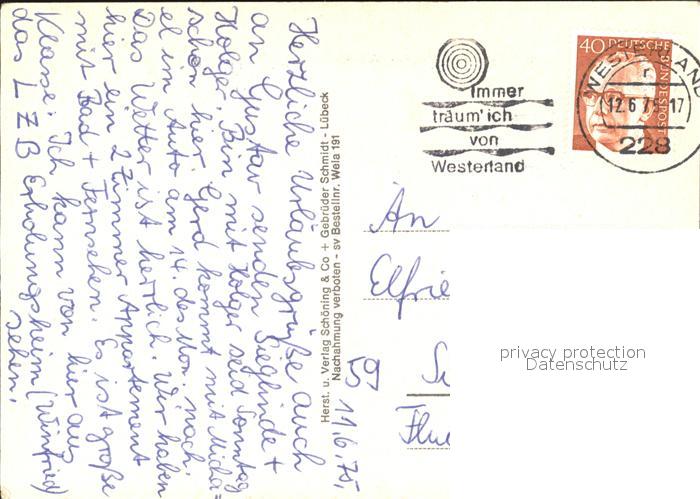 Herzliche Urlaubsgrüße auch
an Gustav senden Sieglinde +
Holger. Bin mit Holger seid Sonntag
schon hier. Gerd kommt mit Micha=
el im Auto am 14. des Mon. nach.
Das Wetter ist herrlich. Wir haben
hier ein 2 Zimmer Appartement
mit Bad + Fernsehen. Es ist große
Klasse. Ich kann von hier aus
das L Z B Erholungsheim (Winfried)
sehen.
11.6.75.
Herst. u. Verlag Schöning & Co + Gebrüder Schmidt - Lübeck
Nachahmung verboten - sv Bestellnr. Wela 191
immer
träum' ich
von
Westerland
40 DEUTSCHE
BUNDESPOST
WESTERLAND
12.6.75-17
228
An
Elfrie
59
privacy protection
Datenschutz